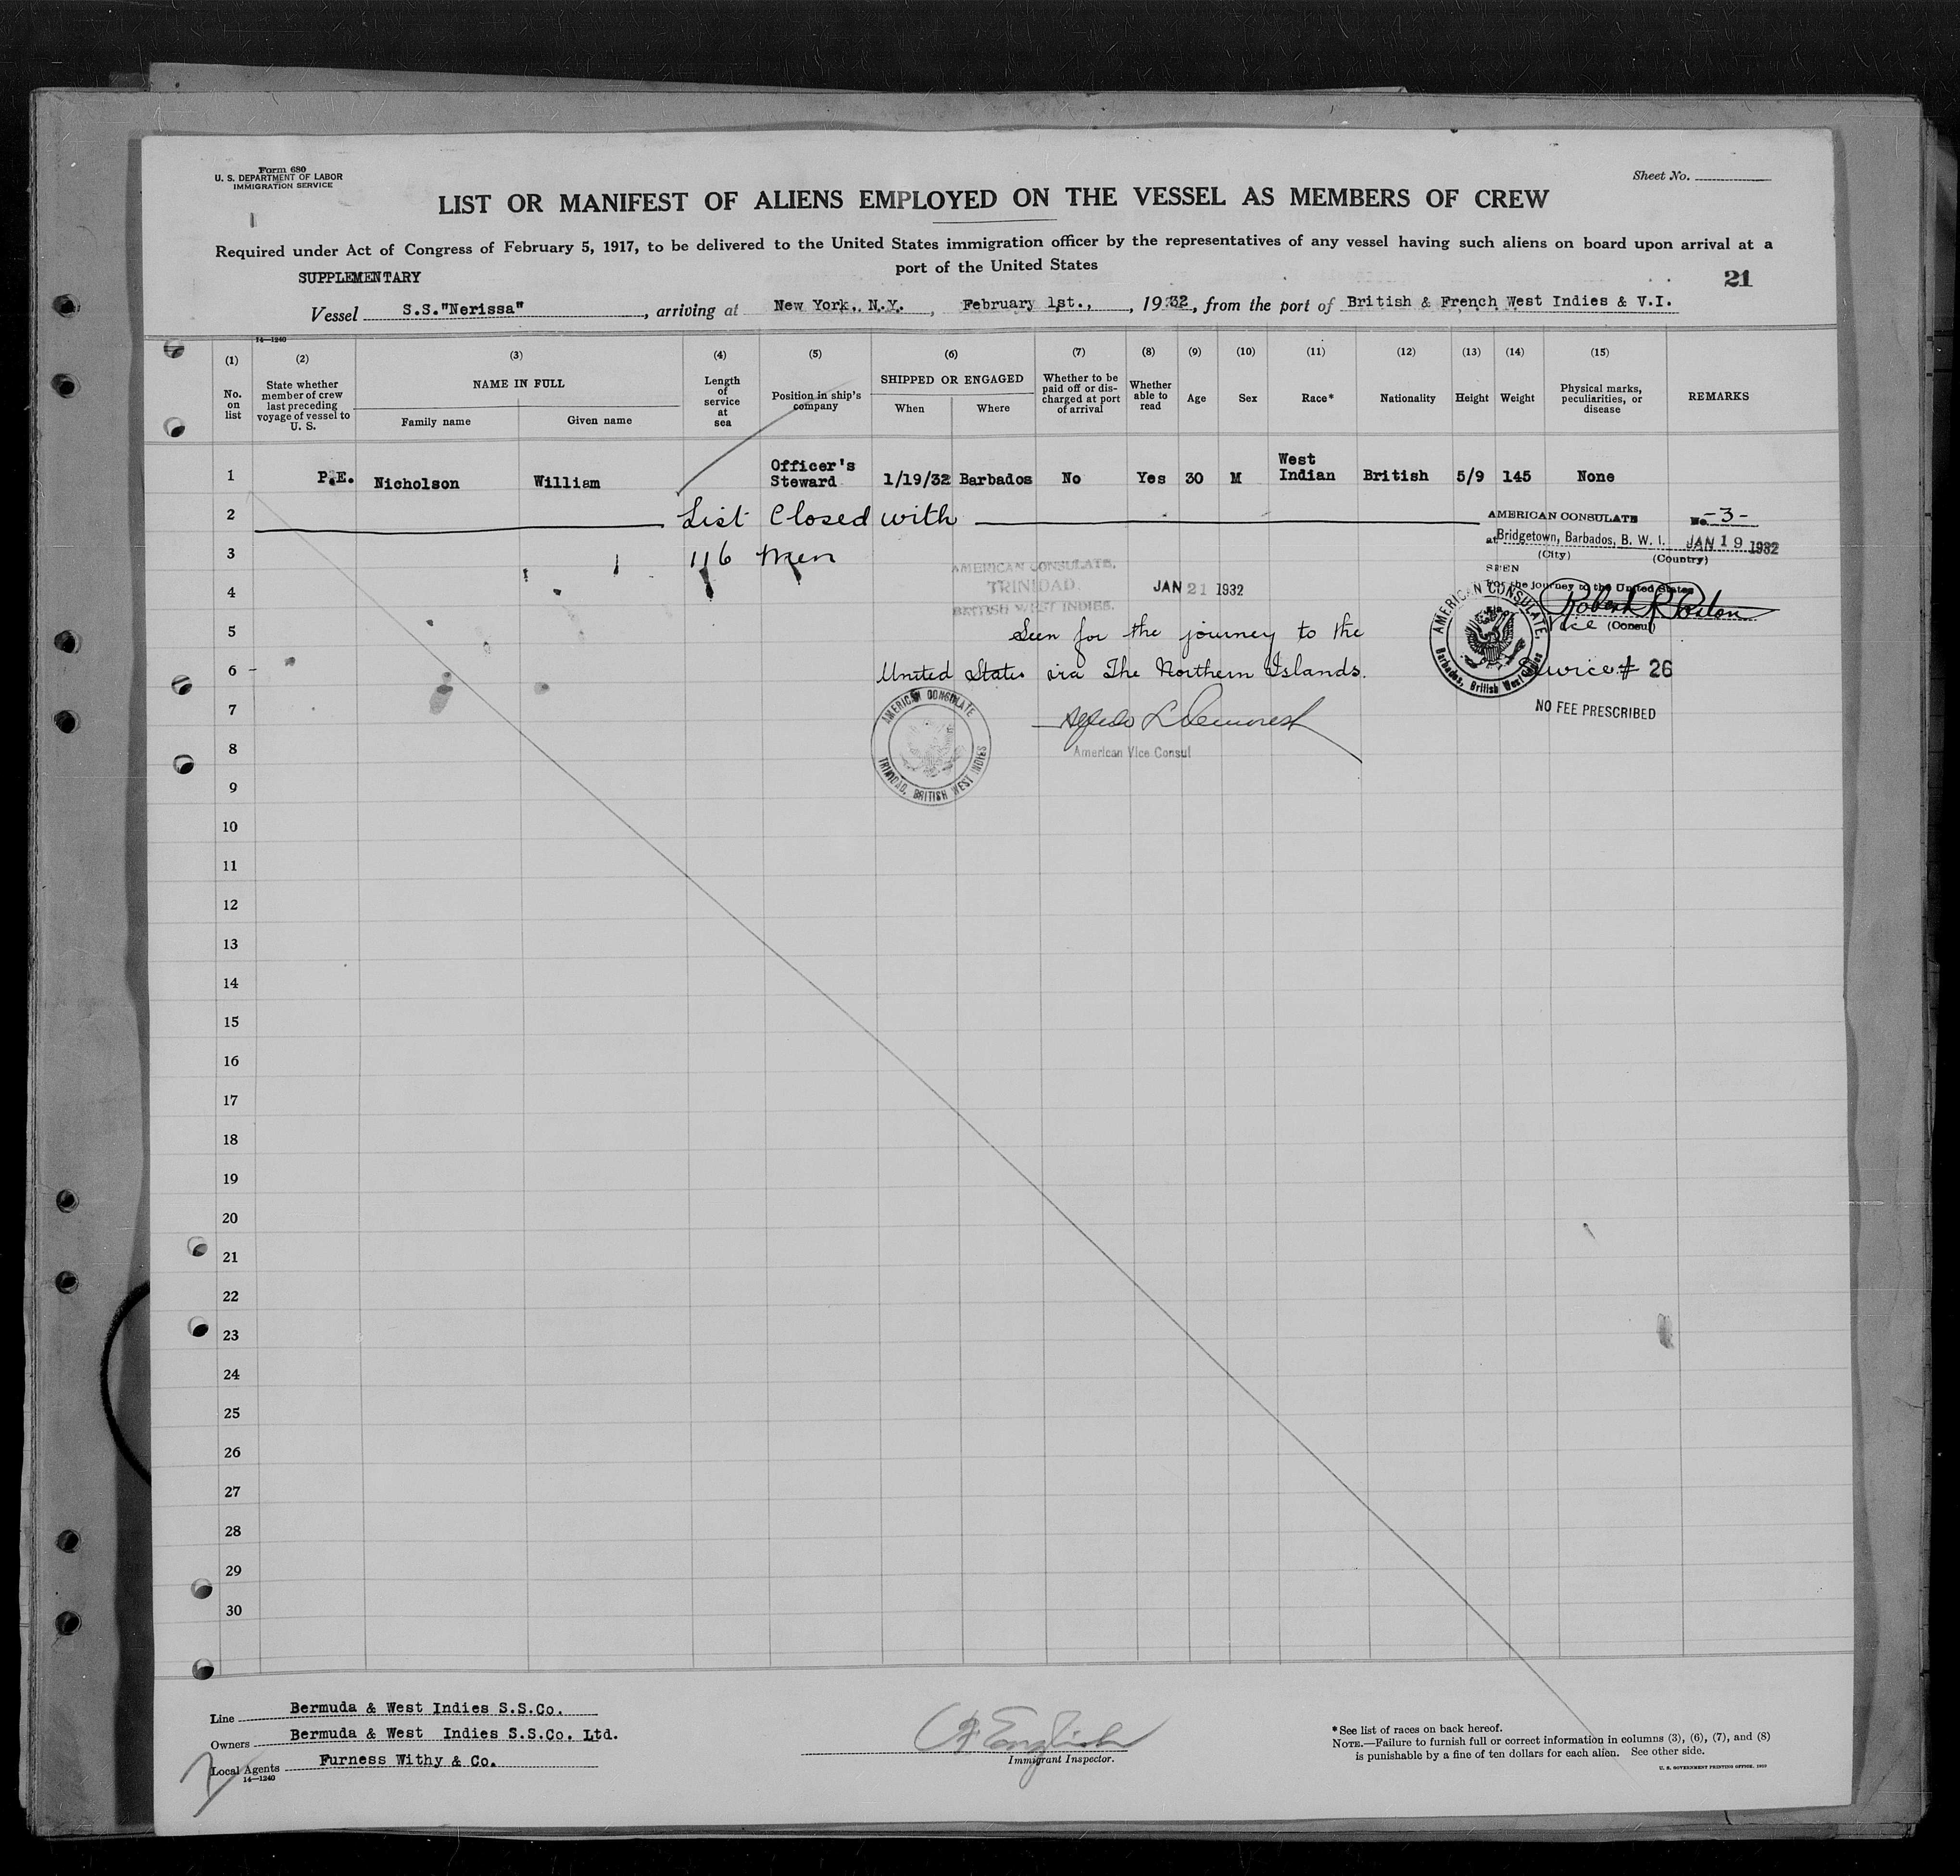 Form 680
U. S. DEPARTMENT OF LABOR
IMMIGRATION SERVICE
Sheet No.
LIST OR MANIFEST OF ALIENS EMPLOYED ON THE VESSEL AS MEMBERS OF CREW
Required under Act of Congress of February 5, 1917, to be delivered to the United States immigration officer by the representatives of any vessel having such aliens on board upon arrival at a
port of the United States
SUPPLEMENTARY
21
Vessel S.S."Nerissa", arriving at New York, N.Y., February 1st., , 1932, from the port of British & French West Indies & V.I.
14—1240
(1) (2) (3) (4) (5) (6) (7) (8) (9) (10) (11) (12) (13) (14) (15)
No. on list
State whether member of crew last preceding voyage of vessel to U. S.
NAME IN FULL
Family name
Given name
Length of service at sea
Position in ship's company
SHIPPED OR ENGAGED
When
Where
Whether to be paid off or discharged at port of arrival
Whether able to read
Age
Sex
Race*
Nationality
Height
Weight
Physical marks, peculiarities, or disease
REMARKS
1 P.E. Nicholson William Officer's Steward 1/19/32 Barbados No Yes 30 M West Indian British 5/9 145 None
2 List Closed with
AMERICAN CONSULATE No. -3-
at Bridgetown, Barbados, B. W. I. JAN 19 1932
(City) (Country)
3 116 men
SEEN
For the journey to the United States
AMERICAN CONSULATE,
TRINIDAD.
BRITISH WEST INDIES.
JAN 21 1932
4
Vice (Consul)
AMERICAN CONSULATE, Barbados, British West Indies
5 Seen for the journey to the
6 United States via The Northern Islands.
Service # 26
NO FEE PRESCRIBED
7
American Vice Consul
AMERICAN CONSULATE TRINIDAD, BRITISH WEST INDIES
8
9
10
11
12
13
14
15
16
17
18
19
20
21
22
23
24
25
26
27
28
29
30
Line Bermuda & West Indies S.S.Co.
Owners Bermuda & West Indies S.S.Co. Ltd.
Local Agents Furness Withy & Co.
14—1240
English
Immigrant Inspector.
*See list of races on back hereof.
NOTE.—Failure to furnish full or correct information in columns (3), (6), (7), and (8)
is punishable by a fine of ten dollars for each alien. See other side.